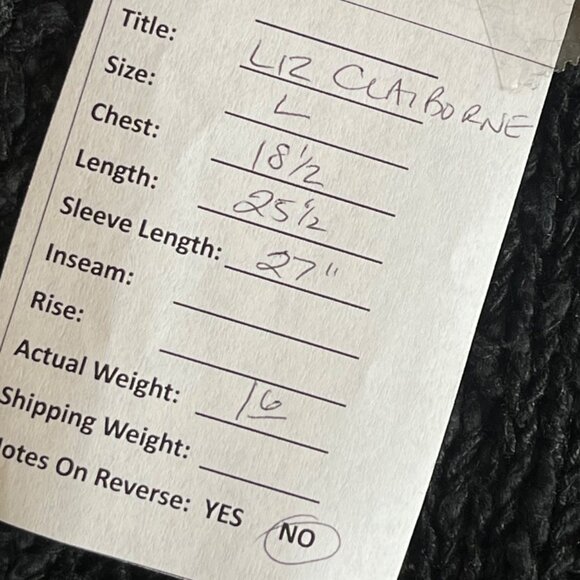 Title: LIZ CLAIBORNE
Size: L
Chest: 18 1/2
Length: 25 1/2
Sleeve Length: 27"
Inseam:
Rise:
Actual Weight: 16
Shipping Weight:
otes On Reverse: YES NO